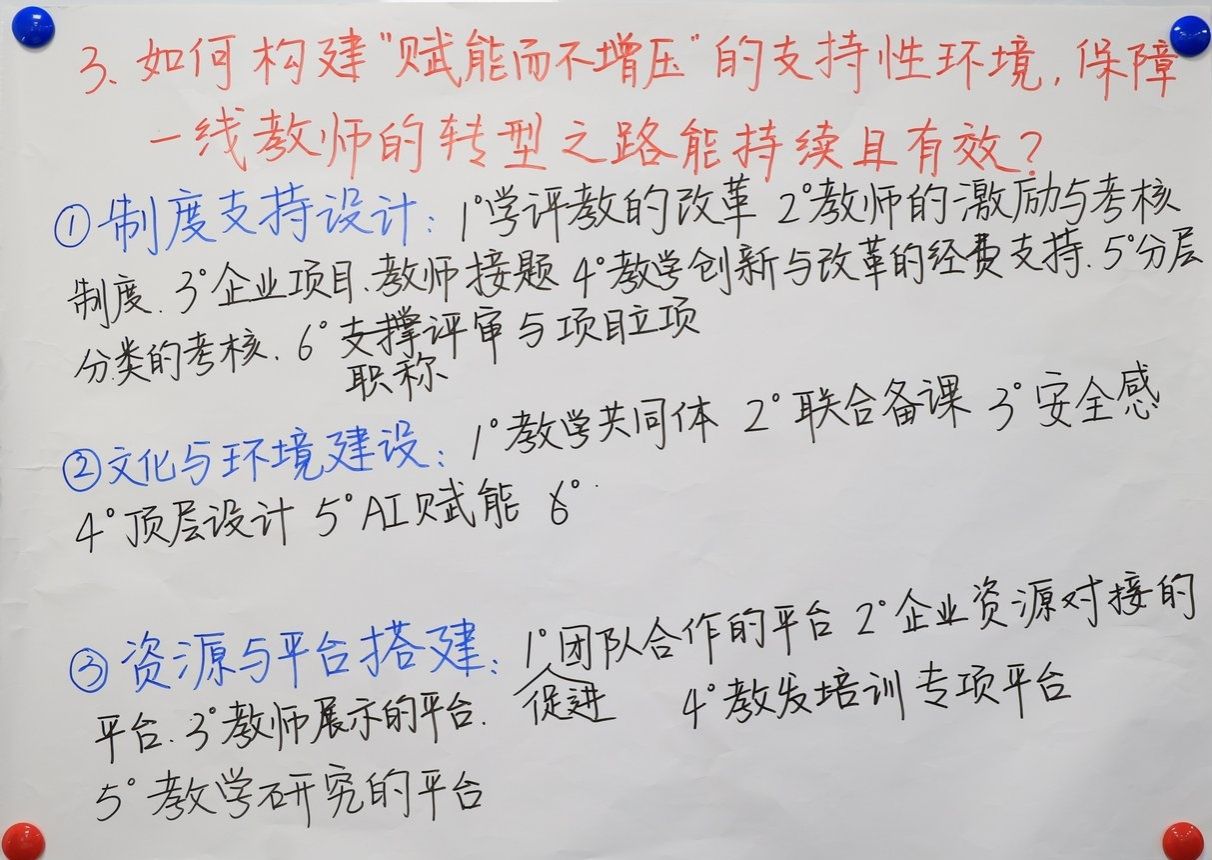 3、如何构建"赋能而不增压"的支持性环境,保障
一线教师的转型之路能持续且有效?
①制度支持设计: 1°学评教的改革 2°教师的激励与考核
制度. 3°企业项目、教师接题 4°教学创新与改革的经费支持. 5°分层
分类的考核. 6°支撑评审与项目立项
职称
②文化与环境建设: 1°教学共同体 2°联合备课 3°安全感
4°顶层设计 5°AI赋能 6°
③资源与平台搭建: 1°团队合作的平台 2°企业资源对接的
促进
平台. 3°教师展示的平台. 4°教发培训专项平台
5°教学研究的平台